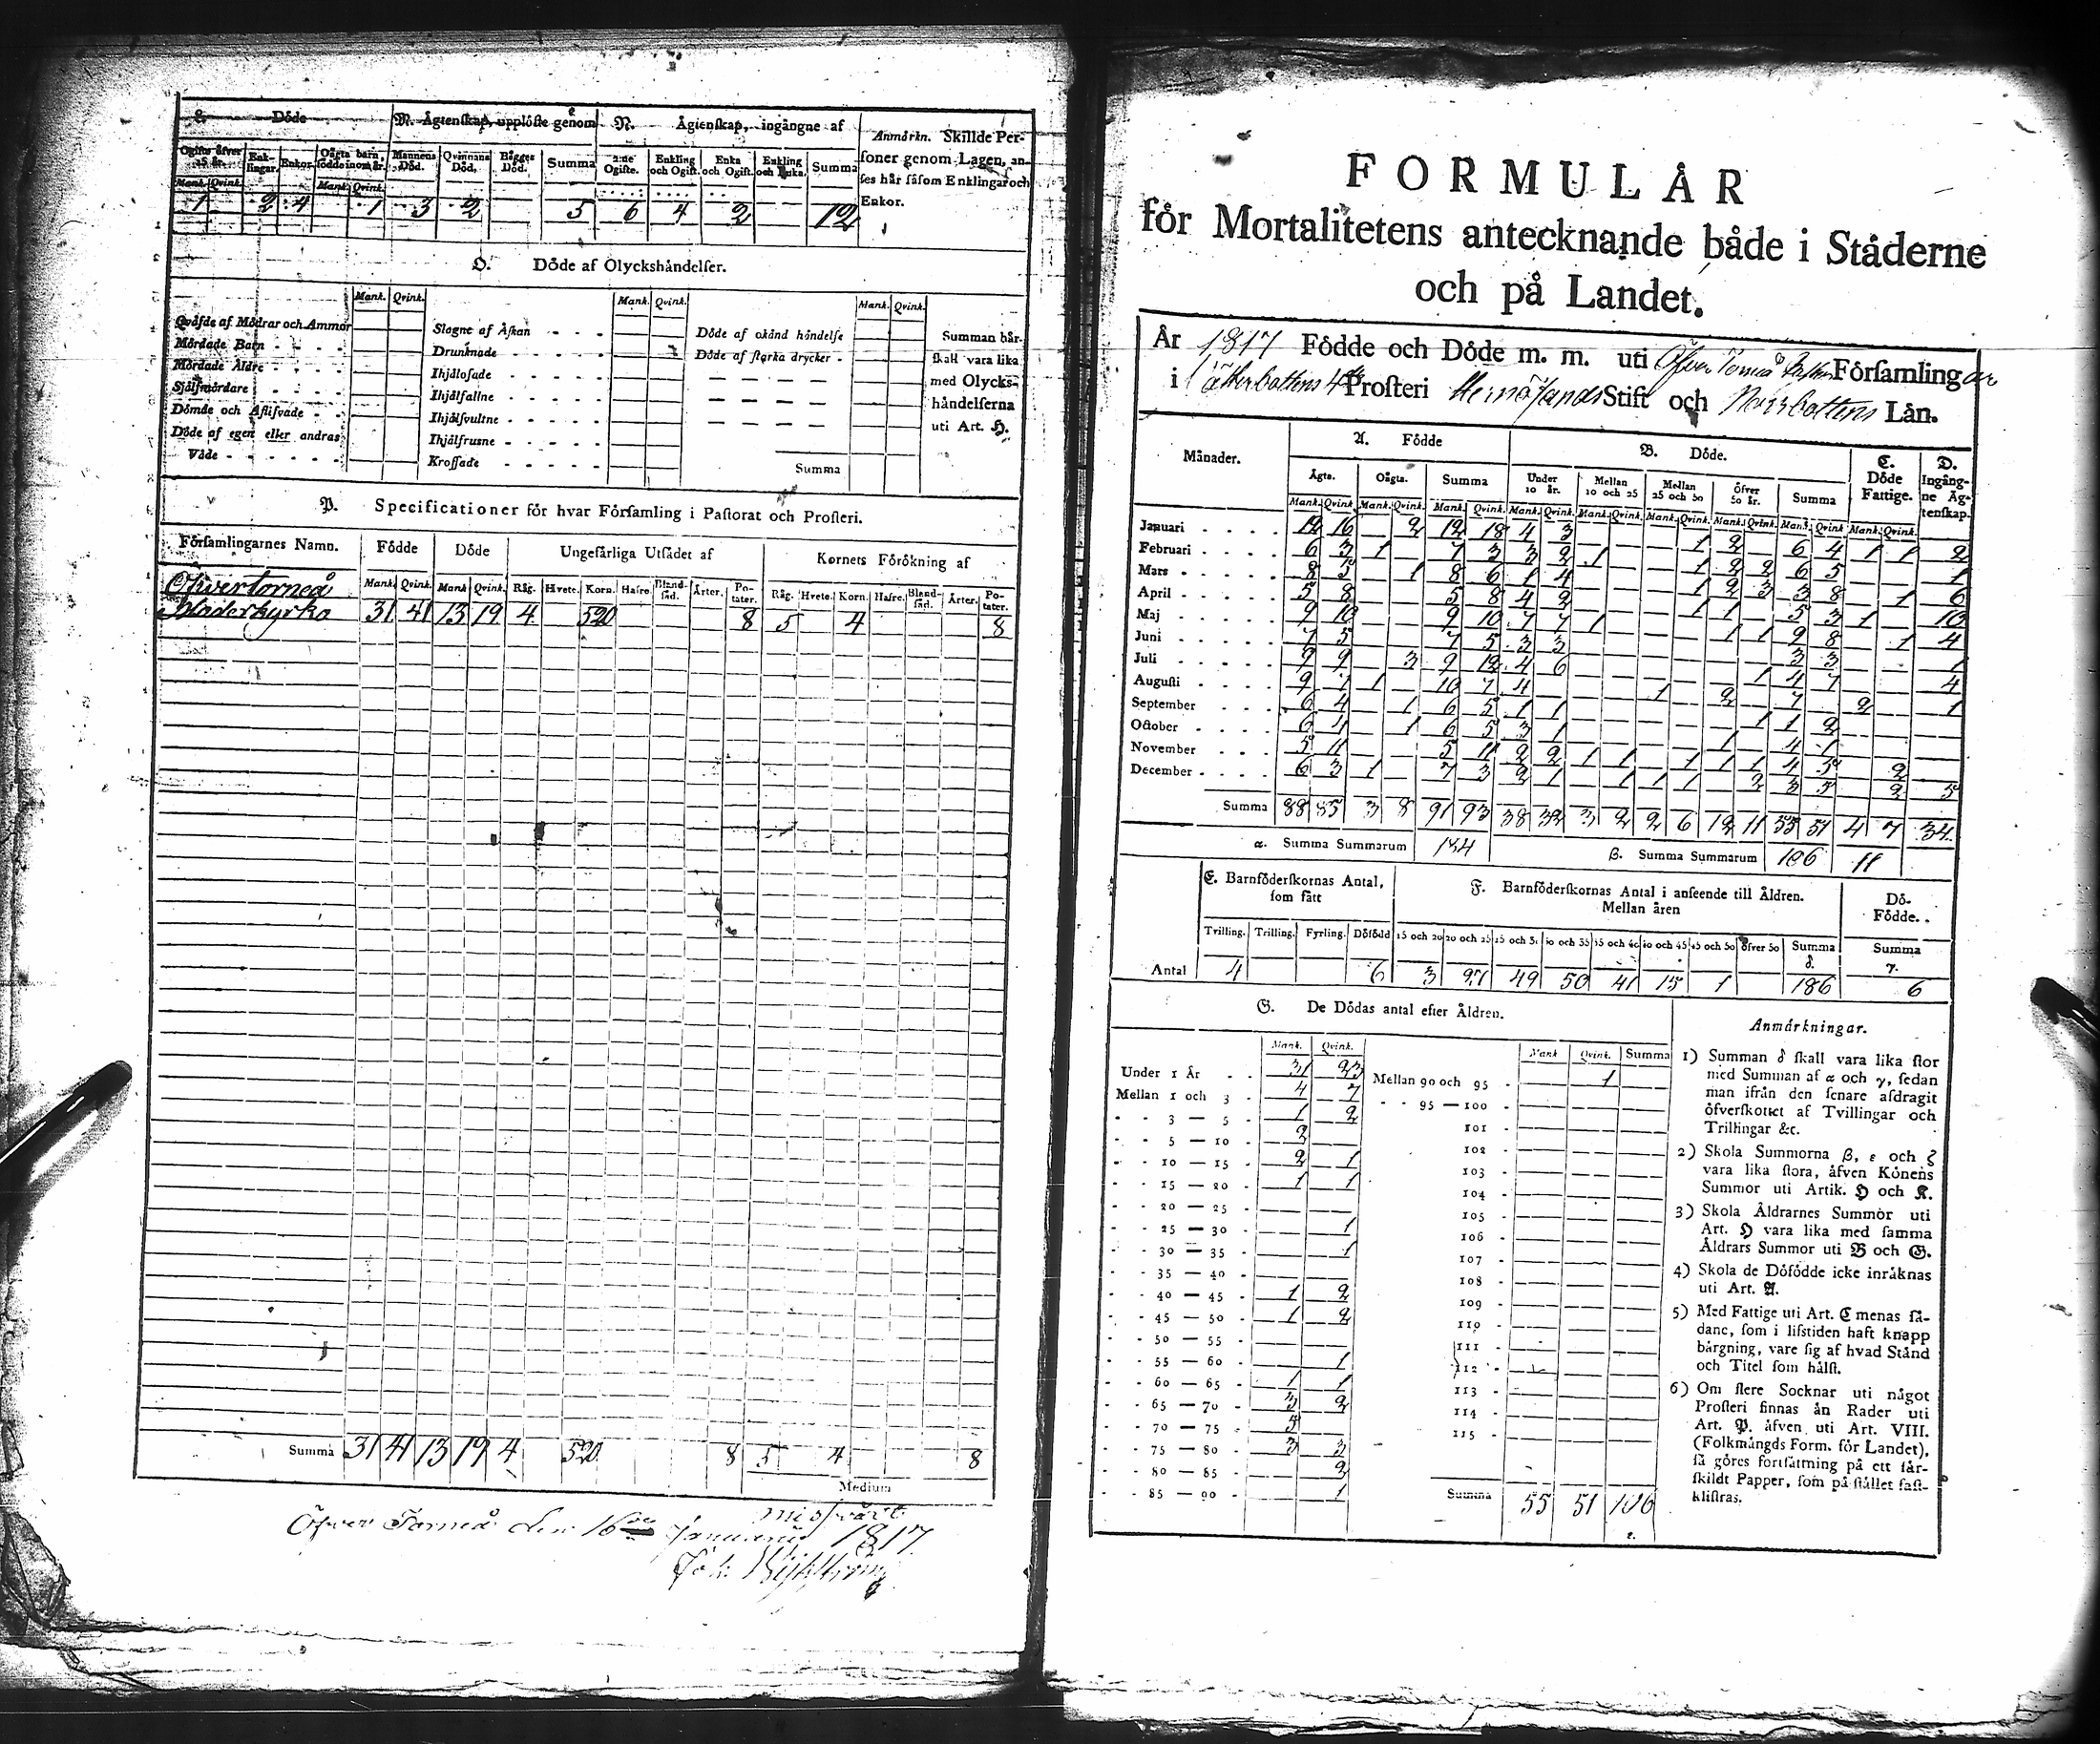 L. Döde
M. Ägtenskap, upplöste genom
N. Ägtenskap, ingångne af
Ogifte öfver 25 år.
Enklingar.
Enkor.
Oägta barn, födde inom år.
Mannens Död.
Qvinnans Död.
Bägges Död.
Summa
2:ne Ogifte.
Enkling och Ogift.
Enka och Ogift.
Enkling och Enka.
Summa
Mank. Qvink. Mank. Qvink.
1 2 4 1 3 2 5 6 4 2 12
Anmärkn. Skillde Per-
soner genom Lagen, an-
ses här såsom Enklingar och
Enkor.
O. Döde af Olyckshändelser.
Mank. Qvink. Mank. Qvink. Mank. Qvink.
Qväfde af Mödrar och Ammor
Mördade Barn
Mördade Äldre
Sjelfmördare
Dömde och Aflifvade
Döde af egen eller andras
Våde
Slagne af Åskan
Drunknade
Ihjälosade
Ihjälfallne
Ihjälsvultne
Ihjälfrusne
Krossade
Döde af okänd händelse
Döde af starka drycker
Summa
Summan här-
skall vara lika
med Olycks-
händelserna
uti Art. H.
P. Specificationer för hvar Församling i Pastorat och Prosteri.
Församlingarnes Namn. Födde Döde Ungefärliga Utsädet af Kornets Förökning af
Mank. Qvink. Mank. Qvink. Råg. Hvete. Korn. Hafre. Bland-säd. Ärter. Po-tater. Råg. Hvete. Korn. Hafre. Bland-säd. Ärter. Po-tater.
Öfvertorneå
Moderkyrka 31 41 13 19 4 520 8 5 4 8
Summa 31 41 13 19 4 520 8 5 4 8
Medium
missvärt
Öfver Torneå den 16de Januarii 1817.
FORMULÄR
för Mortalitetens antecknande både i Städerne
och på Landet.
År 1817 Födde och Döde m. m. uti Öfver Torneå Församlingar
i Prosteri Hernösands Stift och Norrbottens Län.
Månader. A. Födde B. Döde. C. Döde Fattige. D. Ingång-ne Äg-tenskap.
Ägta. Oägta. Summa Under 10 år. Mellan 10 och 25 Mellan 25 och 50 Öfver 50 år. Summa
Mank. Qvink. Mank. Qvink. Mank. Qvink. Mank. Qvink. Mank. Qvink. Mank. Qvink. Mank. Qvink. Mank. Qvink. Mank. Qvink.
Januari 12 16 2 12 18 4 3 1 2 6 4 1 1 2
Februari 6 3 1 7 3 3 2 1 1 2 2 6 5 1
Mars 8 5 1 8 6 1 4 1 2 3 3 8 1 6
April 5 8 5 8 4 2 1 1 5 3 1 10
Maj 9 10 9 10 7 7 1 1 1 9 8 1 4
Juni 7 5 7 5 3 3 3 3 1
Juli 9 9 3 9 12 4 6 1 4 7 4
Augusti 9 7 1 10 7 4 1 2 7 2 1
September 6 4 1 6 5 1 1 1 1 2
October 6 4 1 6 5 3 1 1 4 1
November 5 11 5 11 2 2 1 1 1 1 1 4 5 2
December 6 3 1 7 3 2 1 1 1 1 2 3 5 2 5
Summa 88 85 3 8 91 93 38 32 3 2 2 6 12 11 55 51 4 7 34.
α. Summa Summarum 184 β. Summa Summarum 106 11
E. Barnföderskornas Antal, som fått
F. Barnföderskornas Antal i anseende till Åldren. Mellan åren
Dö-Födde.
Trilling. Trilling. Fyrling. Dödfödd 15 och 20 20 och 25 25 och 30 30 och 35 35 och 40 40 och 45 45 och 50 öfver 50 Summa δ. Summa γ.
Antal 4 6 3 27 49 50 41 15 1 186 6
G. De Dödas antal efter Åldren.
Mank. Qvink. Mank Qvink. Summa
Under 1 År 31 23
Mellan 1 och 3 4 7
3 — 5 1 2
5 — 10 2
10 — 15 2 1
15 — 20 1 1
20 — 25
25 — 30 1
30 — 35 1
35 — 40
40 — 45 1 2
45 — 50 1 2
50 — 55
55 — 60 1
60 — 65 1 1
65 — 70 3 2
70 — 75 5
75 — 80 3 3
80 — 85 2
85 — 90 1
Mellan 90 och 95 1
95 — 100
101
102
103
104
105
106
107
108
109
110
111
112
113
114
115
Summa 55 51 106
ε.
Anmärkningar.
1) Summan δ skall vara lika stor
med Summan af α och γ, sedan
man ifrån den senare afdragit
öfverskottet af Tvillingar och
Trillingar &c.
2) Skola Summorna β, ε och ζ
vara lika stora, äfven Könens
Summor uti Artik. H och K.
3) Skola Åldrarnes Summor uti
Art. H vara lika med samma
Åldrars Summor uti B och G.
4) Skola de Döfödde icke inräknas
uti Art. A.
5) Med Fattige uti Art. C menas så-
dane, som i lifstiden haft knapp
bärgning, vare sig af hvad Stånd
och Titel som hälst.
6) Om flere Socknar uti något
Prosteri finnas än Rader uti
Art. P. äfven uti Art. VIII.
(Folkmängds Form. för Landet),
så göres fortsättning på ett sär-
skildt Papper, som på stället fast-
klistras.